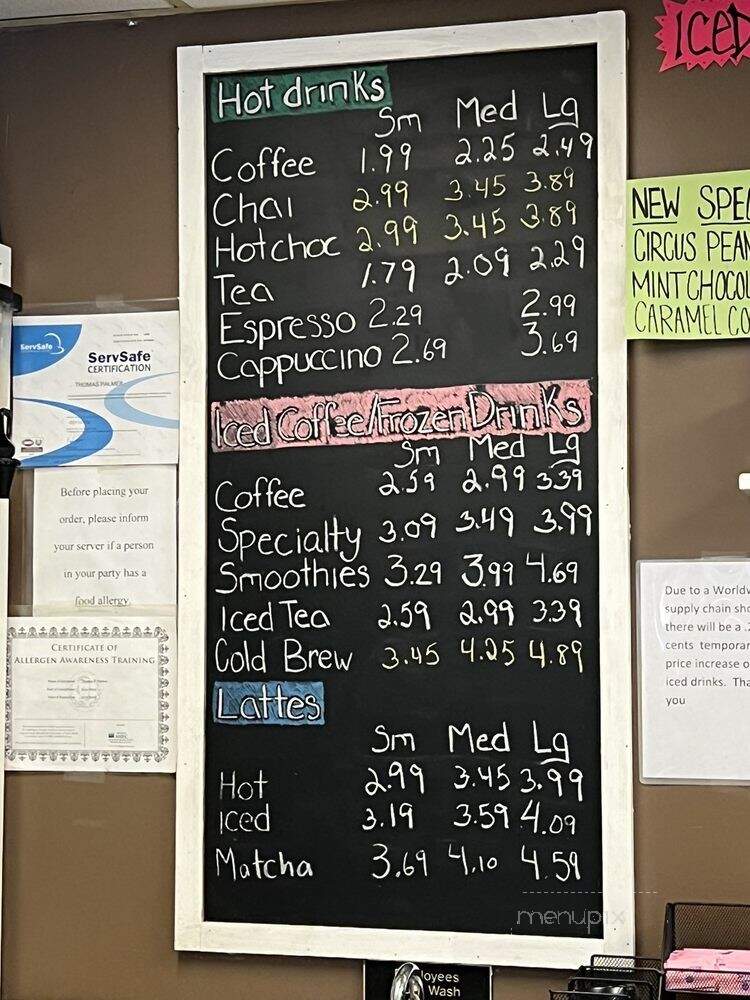 ICED
Hot drinks
Sm Med Lg
Coffee 1.99 2.25 2.49
Chai 2.99 3.45 3.89
Hot choc 2.99 3.45 3.89
Tea 1.79 2.09 2.29
Espresso 2.29 2.99
Cappuccino 2.69 3.69
Iced Coffee/Frozen Drinks
Sm Med Lg
Coffee 2.59 2.99 3.39
Specialty 3.09 3.49 3.99
Smoothies 3.29 3.99 4.69
Iced Tea 2.59 2.99 3.39
Cold Brew 3.45 4.25 4.89
Lattes
Sm Med Lg
Hot 2.99 3.45 3.99
Iced 3.19 3.59 4.09
Matcha 3.69 4.10 4.59
ServSafe
ServSafe
CERTIFICATION
THOMAS PALMER
Before placing your
order, please inform
your server if a person
in your party has a
food allergy.
CERTIFICATE OF
ALLERGEN AWARENESS TRAINING
NEW SPE
CIRCUS PEAN
MINT CHOCOL
CARAMEL CO
Due to a Worldw
supply chain sho
there will be a .2
cents temporar
price increase o
iced drinks. Tha
you
menupix
loyees
Wash